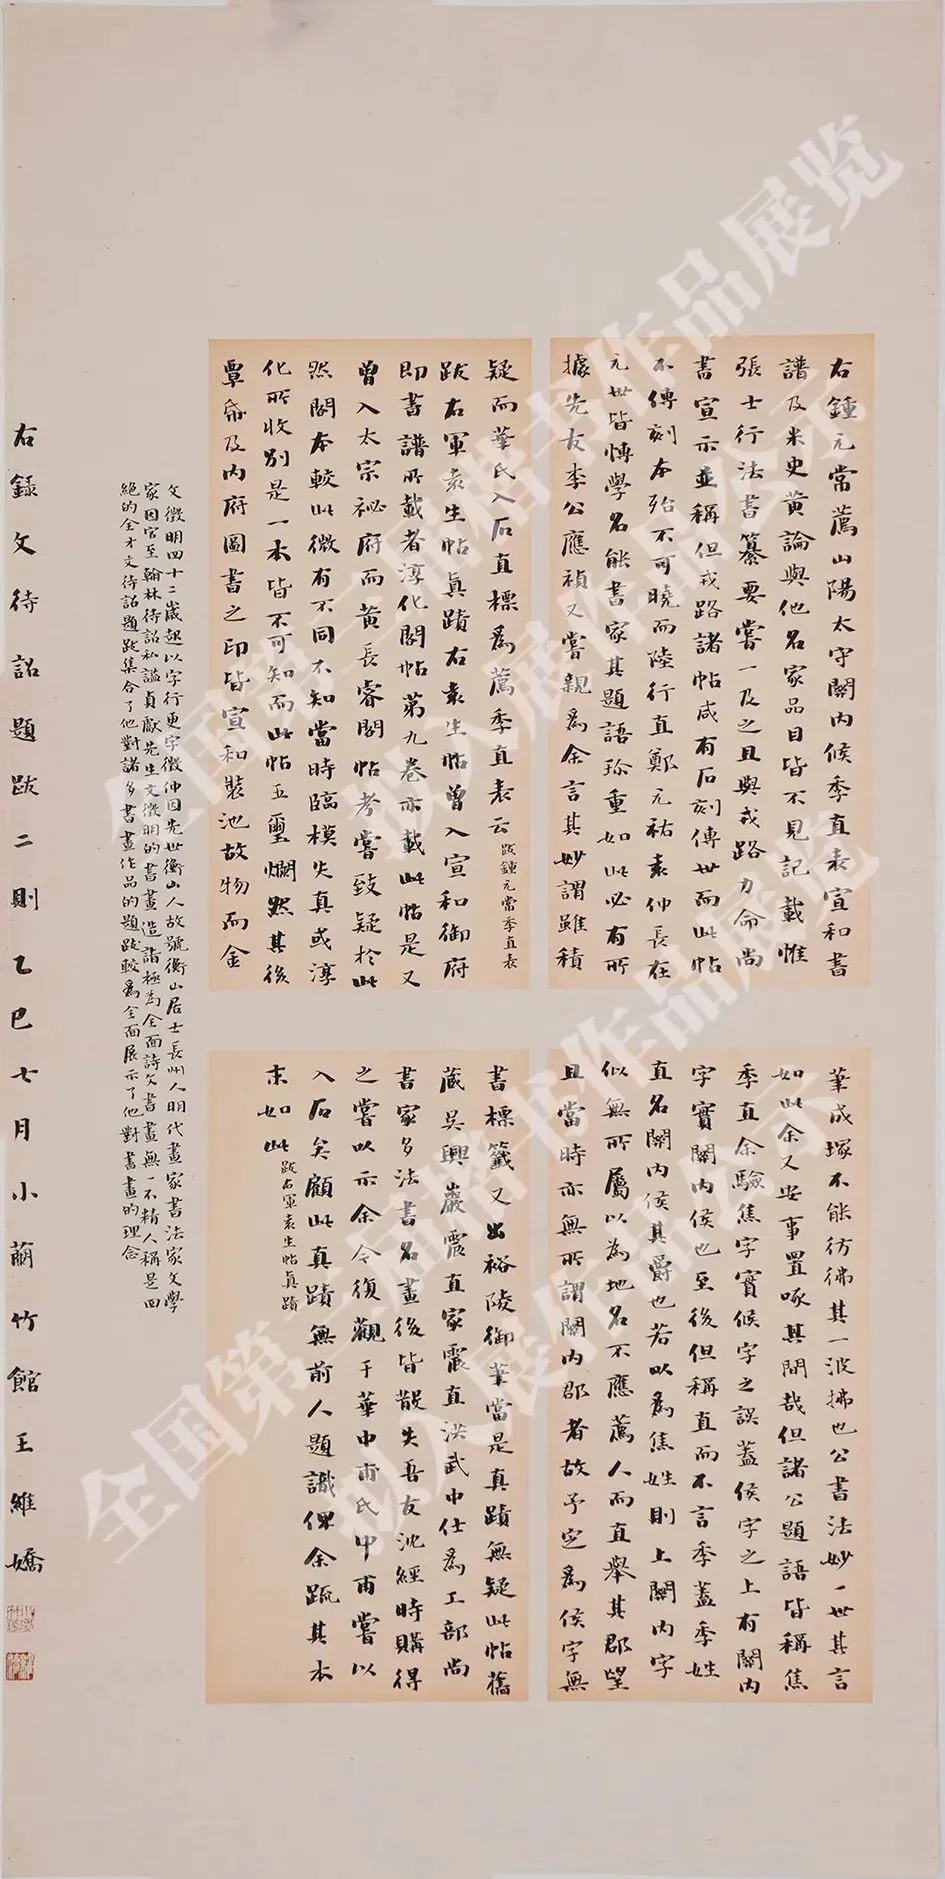 右鍾元常薦山陽太守關內侯季直表宣和書
譜及米史黃論與他名家品目皆不見記載惟
張士行法書纂要嘗一及之且與戎路力命尚
書宣示並稱但戎路諸帖咸有石刻傳世而此帖
不傳刻本殆不可曉而陸行直鄭元祐袁仲長在
元世皆博學名能書家其題語珍重如此必有所
據先友李公應禎又嘗親為余言其妙謂雖積
筆成塚不能彷彿其一波拂也公書法妙一世其言
如此余又安事置啄其間哉但諸公題語皆稱焦
季直余驗焦字實候字之誤蓋侯字之上有關內
字實關內侯也至後但稱直而不言季蓋季姓
直名關內侯其爵也若以為焦姓則上關內字
似無所屬以為地名不應薦人而直舉其郡望
且當時亦無所謂關內郡者故予定為侯字無
疑而華氏入石直標為薦季直表云 跋鍾元常季直表
跋右軍袁生帖真蹟右袁生帖曾入宣和御府
即書譜所載者淳化閣帖第九卷亦載此帖是又
曾入太宗祕府而黃長睿閣帖考嘗致疑於此
然閣本較此微有不同不知當時臨模失真或淳
化所收別是一本皆不可知而此帖五璽爛然其後
覃命及內府圖書之印皆宣和裝池故物而金
書標籤又出裕陵御筆當是真蹟無疑此帖舊
藏吳興嚴震直家震直洪武中仕為工部尚
書家多法書名畫後皆散失吾友沈經時購得
之嘗以示余今復觀于華中甫氏中甫嘗以
入石矣顧此真蹟無前人題識俾余疏其本
末如此 跋右軍袁生帖真蹟
文徵明四十二歲起以字行更字徵仲因先世衡山人故號衡山居士長州人明代畫家書法家文學
家因官至翰林待詔私謚貞獻先生文徵明的書畫造詣極為全面詩文書畫無一不精人稱是四
絕的全才文待詔題跋集合了他對諸多書畫作品的題跋較為全面展示了他對書畫的理念
右錄文待詔題跋二則乙巳七月小蘭竹館王維嬌
全国第三届楷书作品展览
拟入展作品公示